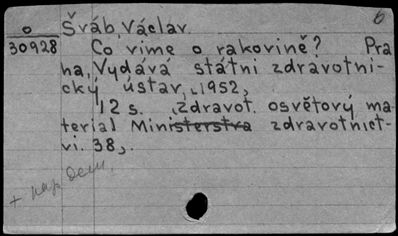 o Šváb, Václav.
30928 Co víme o rakovině? Pra
ha, Vydává státní zdravotni-
cký ústav, 1952,
12 s. Zdravot. osvětový ma
terial Ministerstva zdravotnict-
ví. 38,.
6